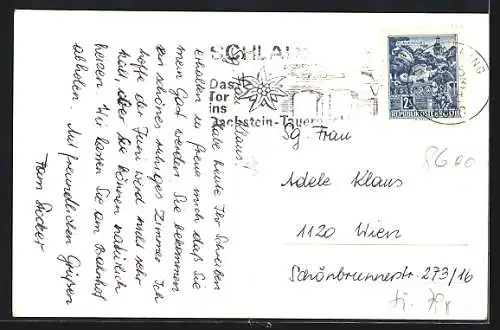 SCHLADMING
Das
Tor
ins
Dachstein-Tauern
2S
REPUBLIK ÖSTERREICH
Sg. Frau Klaus!
Habe heute Ihr Schreiben
erhalten u. freue mich daß Sie
mein Gast werden. Sie bekommen
ein schönes ruhiges Zimmer. Ich
hoffe der Juni wird nicht sehr
kühl, aber Sie können natürlich
heizen. Wir lassen Sie am Bahnhof
abholen. Mit freundlichen Grüßen
Fam.
Sg. Frau
Adele Klaus
1120 Wien
Schönbrunnerstr. 273/16
8600